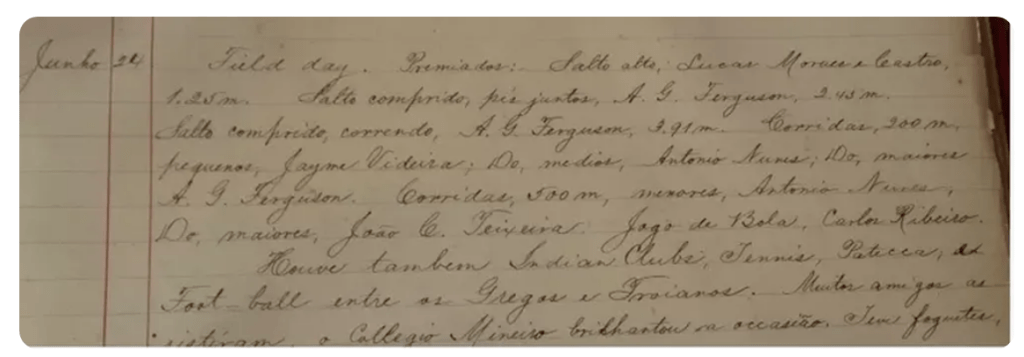 Junho 24 Field day. Premiados: Salto alto, Lucas Moraes e Castro,
1.25 m. Salto comprido, pés juntos, A. G. Ferguson, 2.45 m.
Salto comprido, correndo, A. G. Ferguson, 3.91 m. Corridas, 200 m,
pequenos, Jayme Videira; Do, medios, Antonio Nunes; Do, maiores
A. G. Ferguson. Corridas, 500 m, menores, Antonio Nunes,
Do, maiores, João C. Teixeira. Jogo de Bola, Carlos Ribeiro.
Houve tambem Indian Clubs, Tennis, Patecca,
Foot-ball entre os Gregos e Troianos. Muitos amigos as
sistiram, o Collegio Mineiro brilhantou a occasião. Teve foguetes,